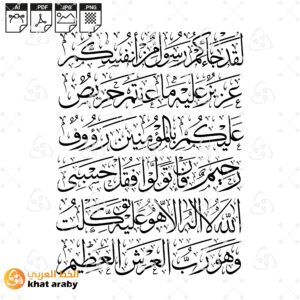 .Ai
.PDF
.JPG
.PNG
لقد جاءكم رسول من أنفسكم
عزيز عليه ما عنتم حريص
عليكم بالمؤمنين رءوف
رحيم فإن تولوا فقل حسبي
الله لا إله إلا هو عليه توكلت
وهو رب العرش العظيم
الخط العربي
khat araby